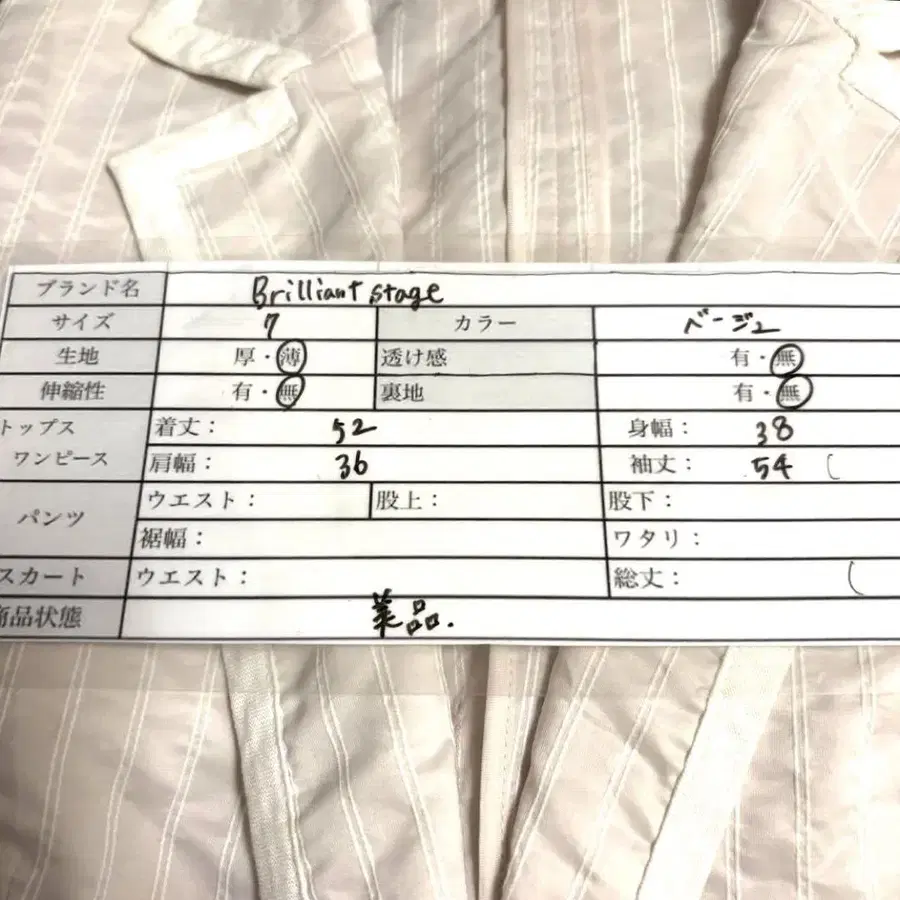 ブランド名 Brilliant stage
サイズ 7 カラー ベージュ
生地 厚・薄 透け感 有・無
伸縮性 有・無 裏地 有・無
トップス 着丈: 52 身幅: 38
ワンピース 肩幅: 36 袖丈: 54 (
パンツ ウエスト: 股上: 股下:
裾幅: ワタリ:
スカート ウエスト: 総丈: (
商品状態 美品.